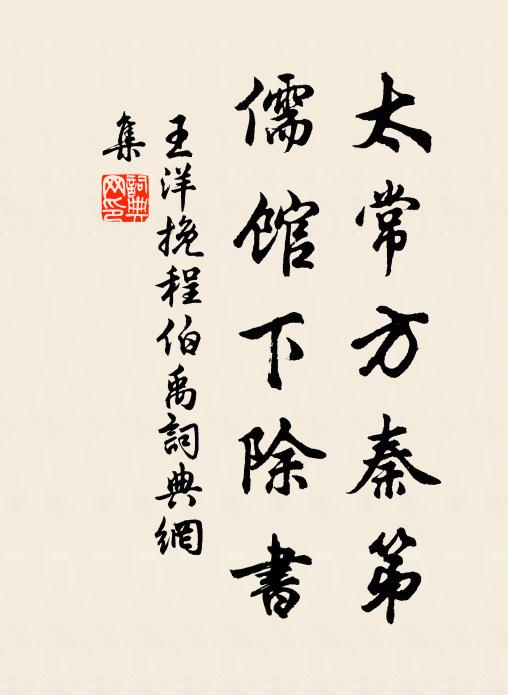 太常方秦第
儒館下除書
王洋挽程伯禹詞典網
集
詞典网印